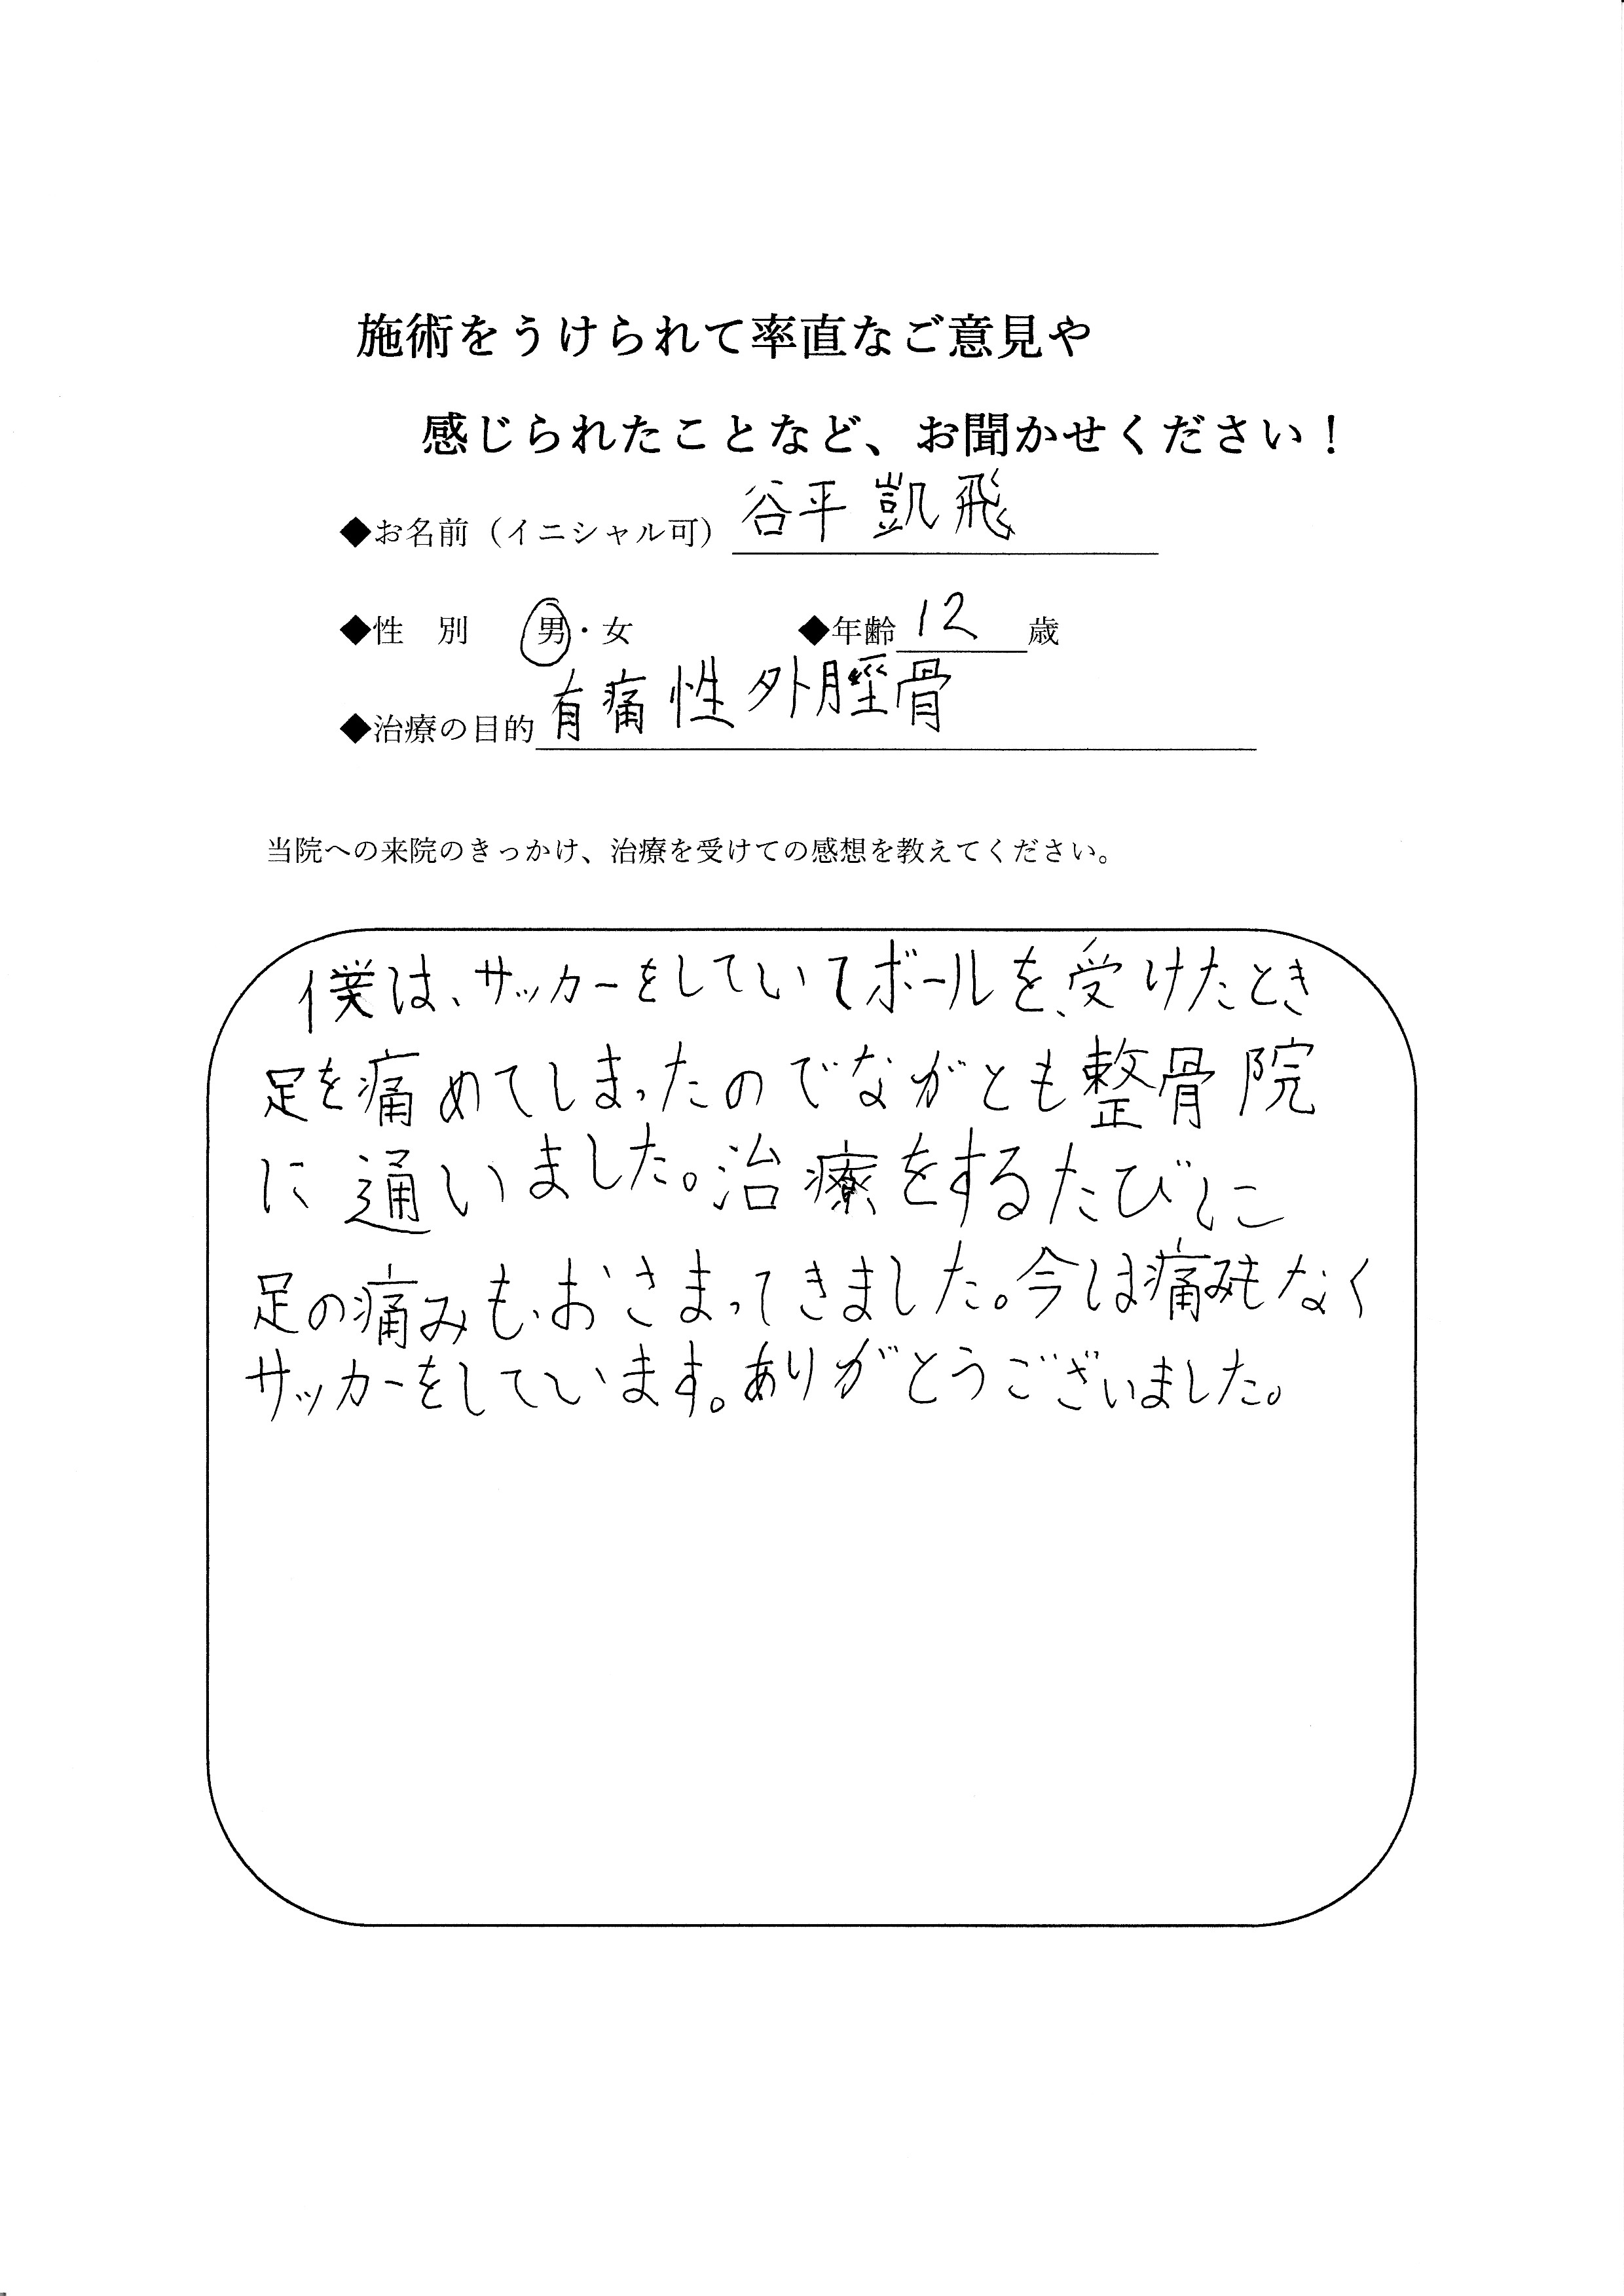 施術をうけられて率直なご意見や
感じられたことなど、お聞かせください！
◆お名前（イニシャル可） 谷平 凱飛
◆性　別　男・女　◆年齢 12 歳
◆治療の目的 有痛性外脛骨
当院への来院のきっかけ、治療を受けての感想を教えてください。
僕は、サッカーをしていてボールを、受けたとき
足を痛めてしまったのでながとも整骨院
に通いました。治療をするたびに
足の痛みも、おさまってきました。今は痛みもなく
サッカーをしています。ありがとうございました。